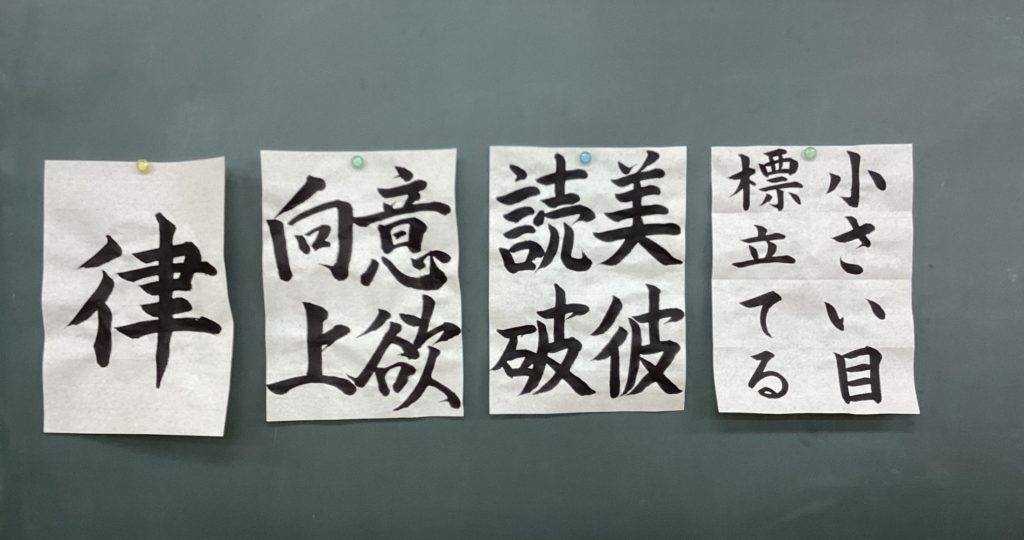 小さい目
標立てる
美彼
読破
意欲
向上
律